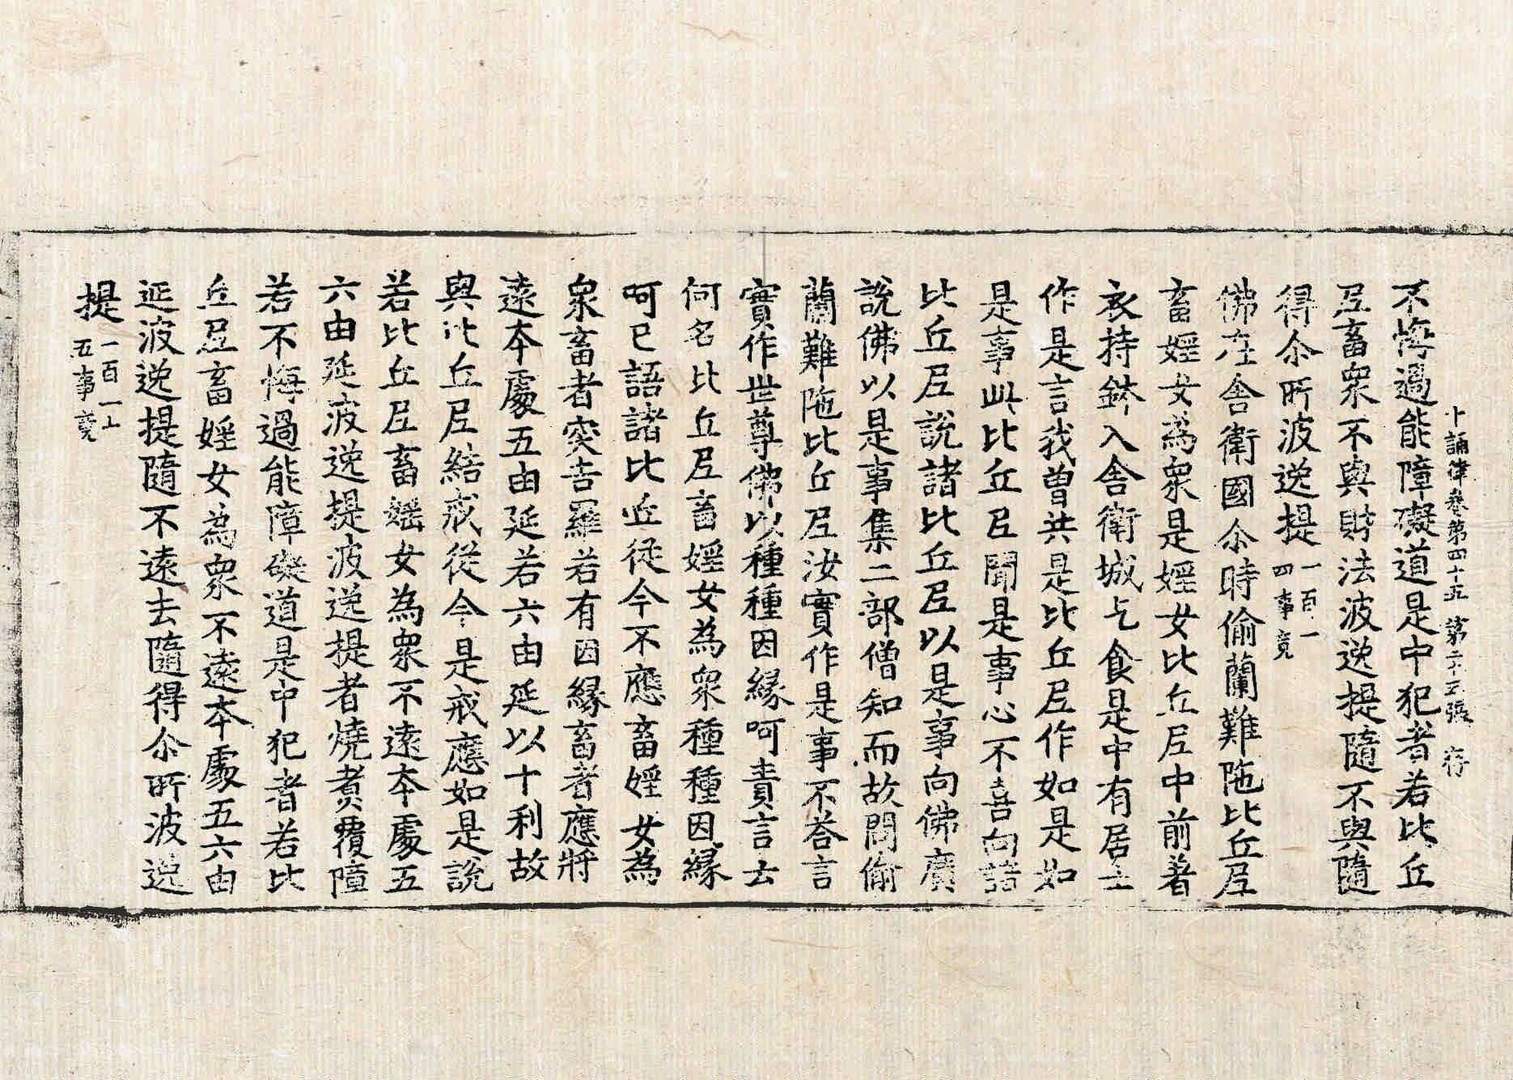 十誦律卷第四十五 第二十五張 存
不悔過能障礙道是中犯者若比丘
尼畜衆不與財法波逸提隨不與隨
得尒所波逸提一百一四事竟
佛在舍衛國尒時偷蘭難陁比丘尼
畜婬女爲衆是婬女比丘尼中前著
衣持鉢入舍衛城乞食是中有居士
作是言我曾共是比丘尼作如是如
是事此比丘尼聞是事心不喜向諸
比丘尼說諸比丘尼以是事向佛廣
說佛以是事集二部僧知而故問偷
蘭難陁比丘尼汝實作是事不荅言
實作世尊佛以種種因緣呵責言云
何名比丘尼畜婬女爲衆種種因緣
呵已語諸比丘從今不應畜婬女爲
衆畜者突吉羅若有因緣畜者應將
遠本處五由延若六由延以十利故
與比丘尼結戒從今是戒應如是說
若比丘尼畜婬女為衆不遠本處五
六由延波逸提波逸提者燒煑覆障
若不悔過能障礙道是中犯者若比
丘尼畜婬女為衆不遠本處五六由
延波逸提隨不遠去隨得尒所波逸
提一百一十五事竟